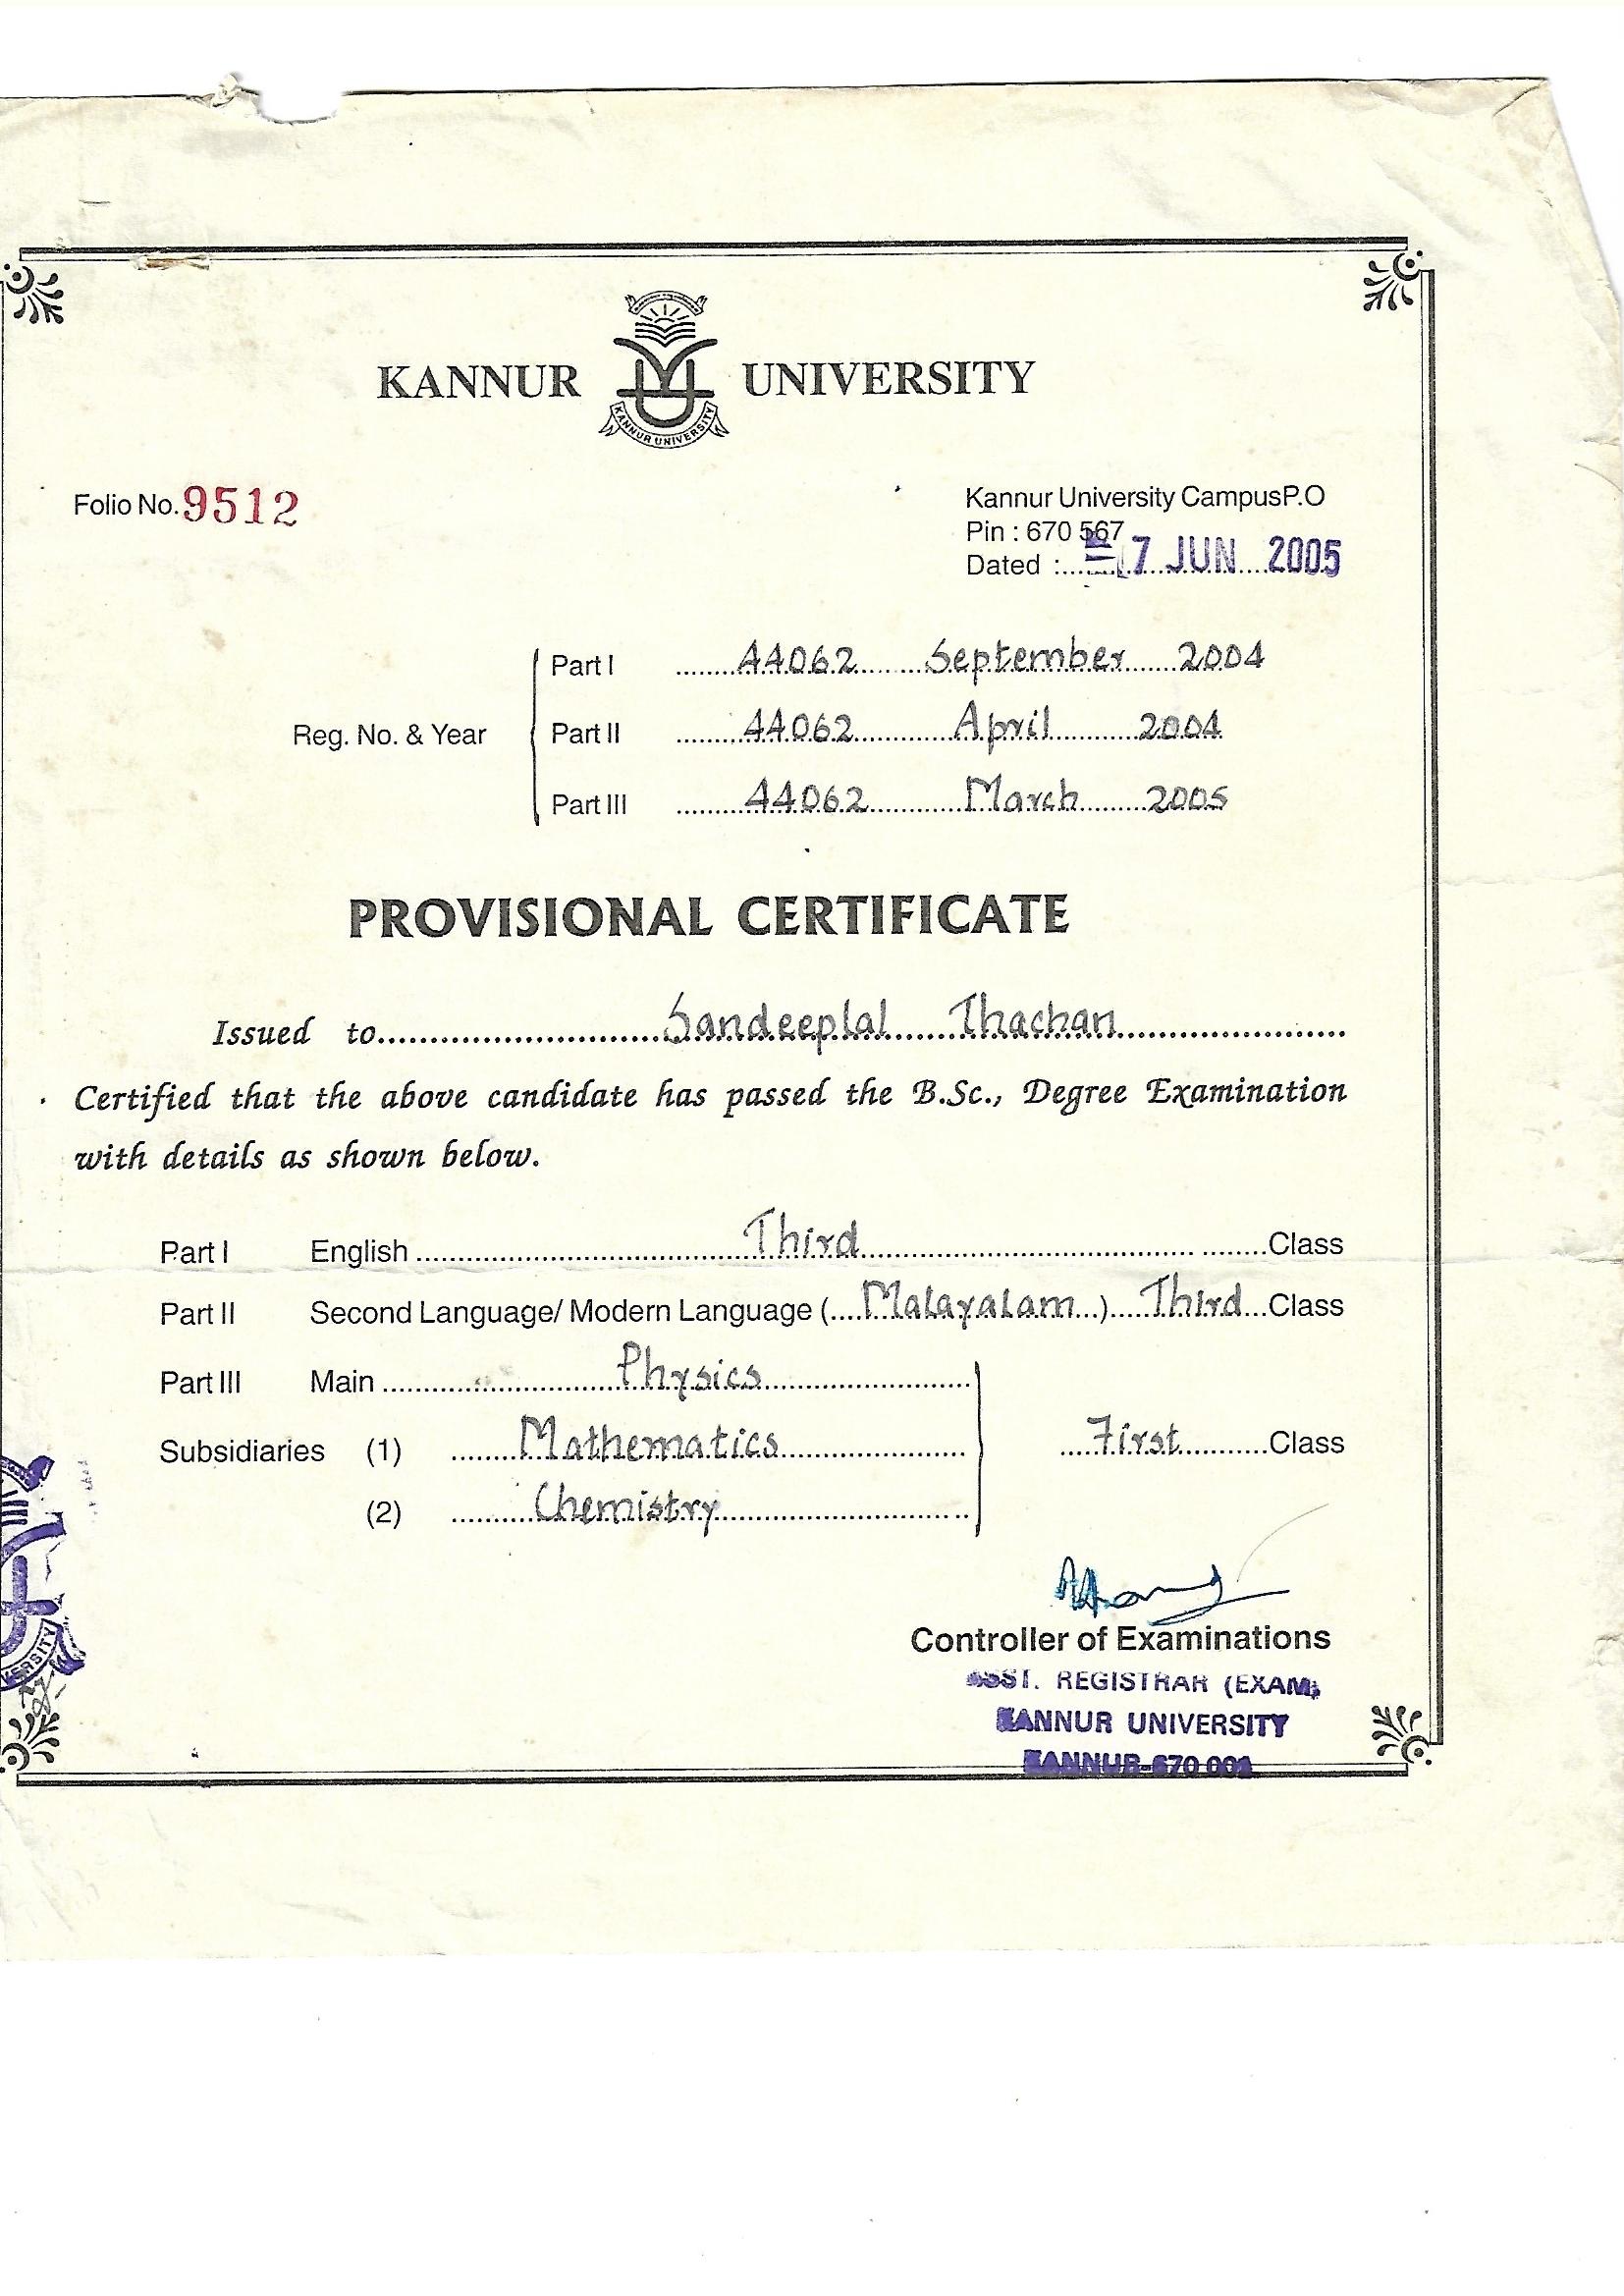 KANNUR UNIVERSITY
KANNUR UNIVERSITY
Folio No. 9512
Kannur University Campus P.O
Pin : 670 567
Dated :.....-7 JUN 2005
Part I ........44062......September......2004
Reg. No. & Year
Part II ........44062............April...........2004
Part III ........44062............March........2005
PROVISIONAL CERTIFICATE
Issued to............Sandeeplal Thachan............
Certified that the above candidate has passed the B.Sc., Degree Examination
with details as shown below.
Part I English............Third............Class
Part II Second Language/ Modern Language (....Malayalam...).....Third...Class
Part III Main............Physics............
Subsidiaries (1) ........Mathematics............
....First..........Class
(2) ..........Chemistry............
VERSITY
Controller of Examinations
ASST. REGISTRAR (EXAM)
KANNUR UNIVERSITY
KANNUR-670 001